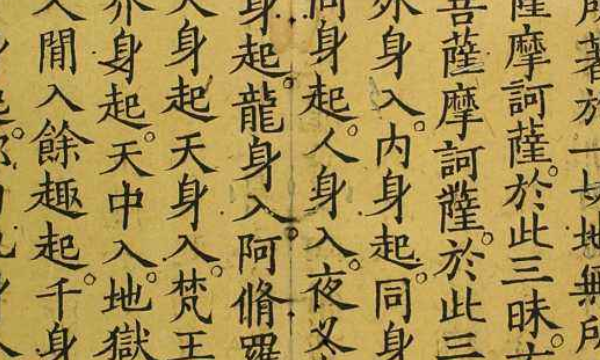 所著於一切地無所
薩摩訶薩。於此三昧。
菩薩摩訶薩。於此三
外身入。内身起。同身
同身起。人身入。夜叉
身起。龍身入阿脩羅
天身起天身入。梵王
界身起。天中入。地獄
人閒入餘趣起。千身